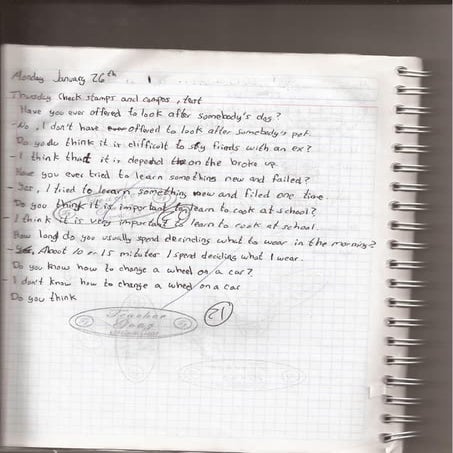 Monday January 26th 1
Thursday Check stamps and campos, test
Have you ever offered to look after somebody's dog?
-No, I don't have ever offered to look after somebody's pet.
Do you think it is difficult to stay friends with an ex?
- I think that it is depend the on the broke up.
Have you ever tried to learn something new and failed?
- Yes, I tried to learn something new and filed one time.
Do you think it is important to learn to cook at school?
- I think it is very important to learn to cook at school.
How long do you usually spend decinding what to wear in the morning?
- Yes, About 10 or 15 mitutes I spend deciding what I wear.
Do you know how to change a wheel on a car?
- I don't know how to change a wheel on a car
Do you think
21
Teacher